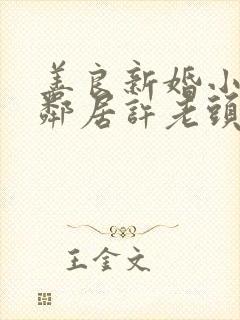 美良新婚小
鄰居許老頭
王金文